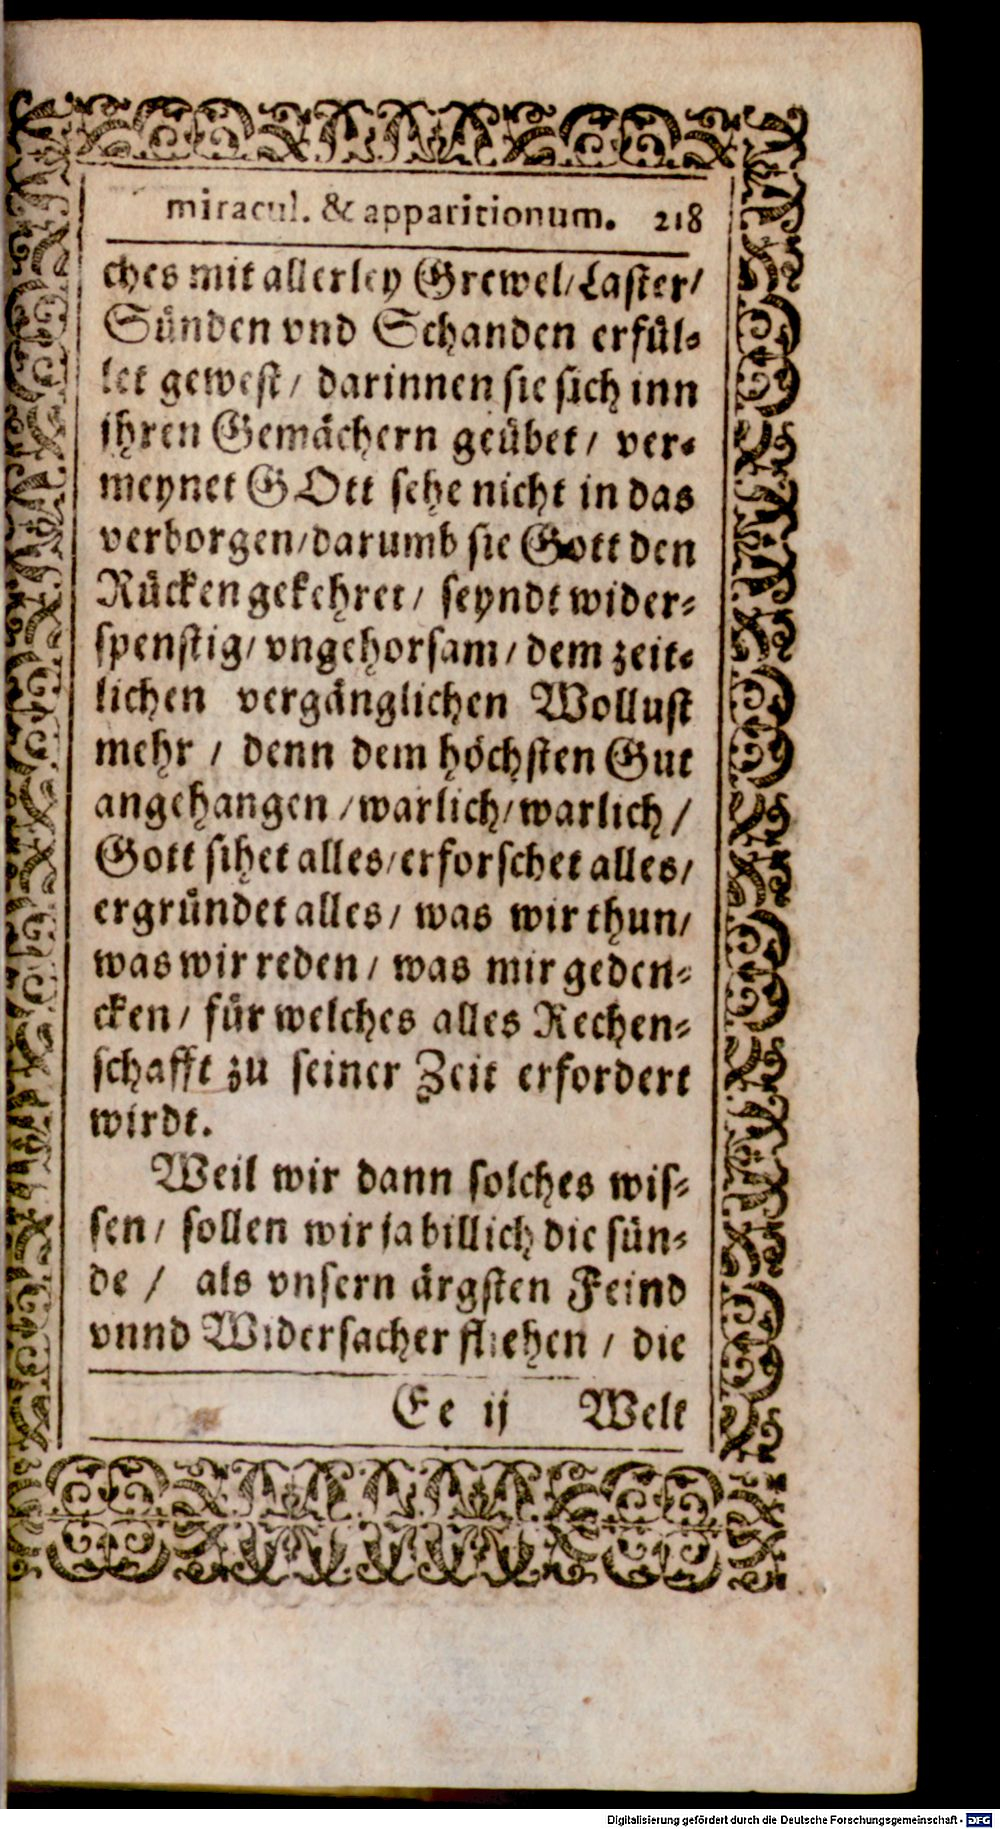 miracul. & apparitionum. 218
ches mit allerley Grewel/ Laster/
Sünden vnd Schanden erfül-
let gewest/ darinnen sie sich inn
jhren Gemächern geübet/ ver-
meynet GOtt sehe nicht in das
verborgen/ darumb sie Gott den
Rücken gekehret/ seyndt wider-
spenstig/ vngehorsam/ dem zeit-
lichen vergänglichen Wollust
mehr / denn dem höchsten Gut
angehangen / warlich/ warlich /
Gott sihet alles/ erforschet alles/
ergründet alles/ was wir thun/
was wir reden/ was mir geden-
cken/ für welches alles Rechen-
schafft zu seiner Zeit erfordert
wirdt.
Weil wir dann solches wis-
sen/ sollen wir ja billich die sün-
de / als vnsern ärgsten Feind
vnnd Widersacher fliehen / die
Ee ij Welt
Digitalisierung gefördert durch die Deutsche Forschungsgemeinschaft - DFG